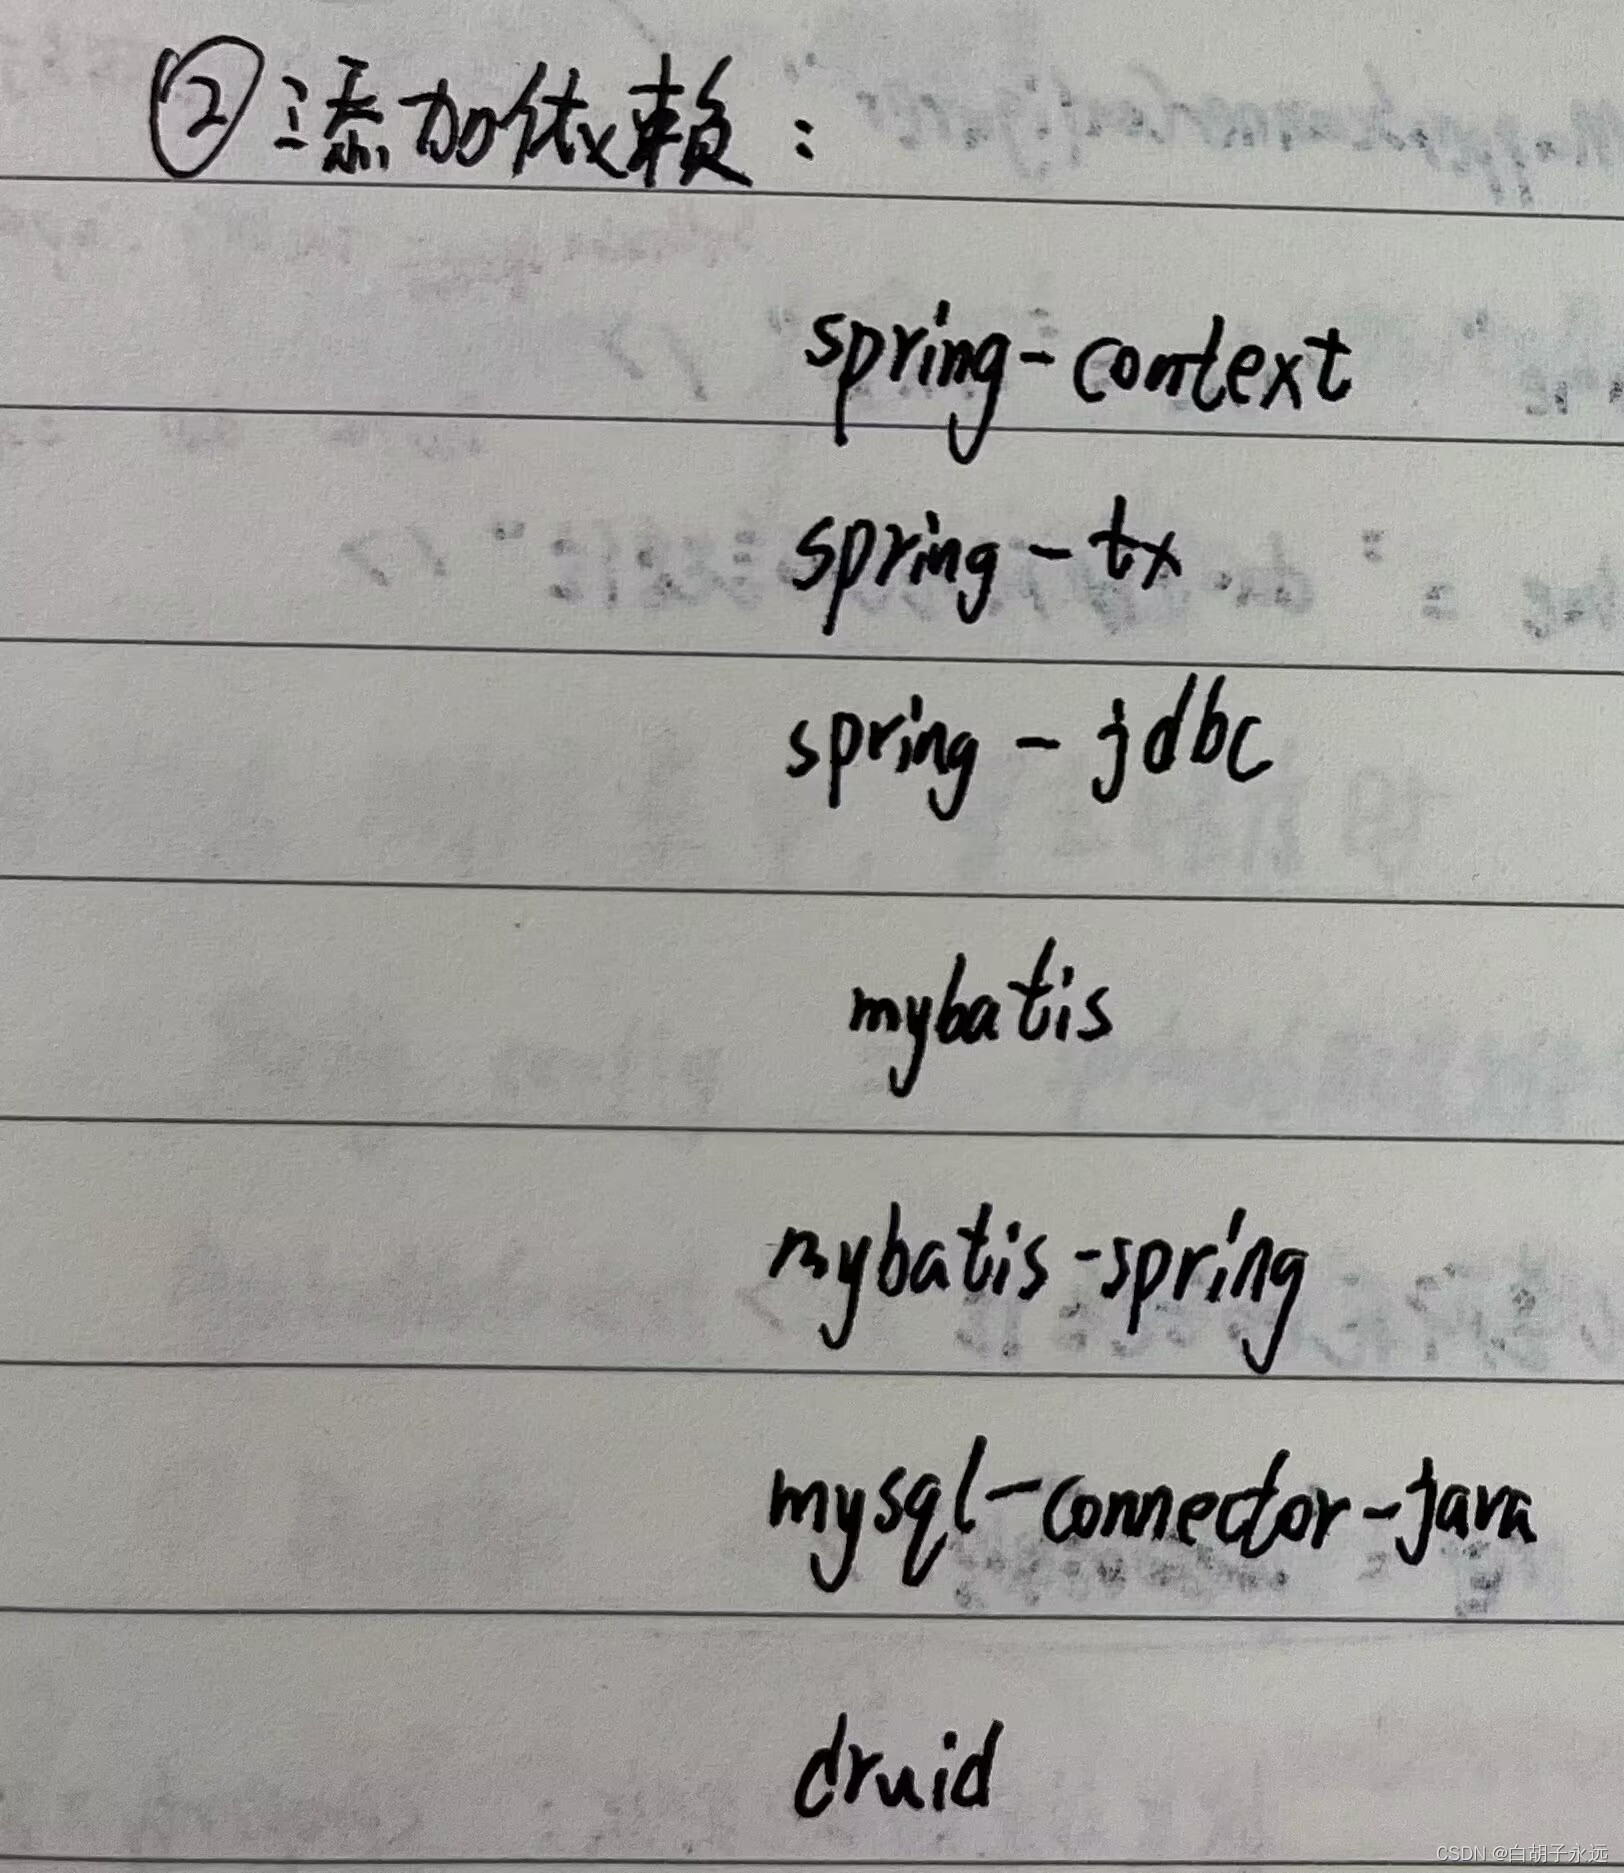 ②添加依赖：
spring-context
spring-tx
spring-jdbc
mybatis
mybatis-spring
mysql-connector-java
druid
CSDN @白胡子永远